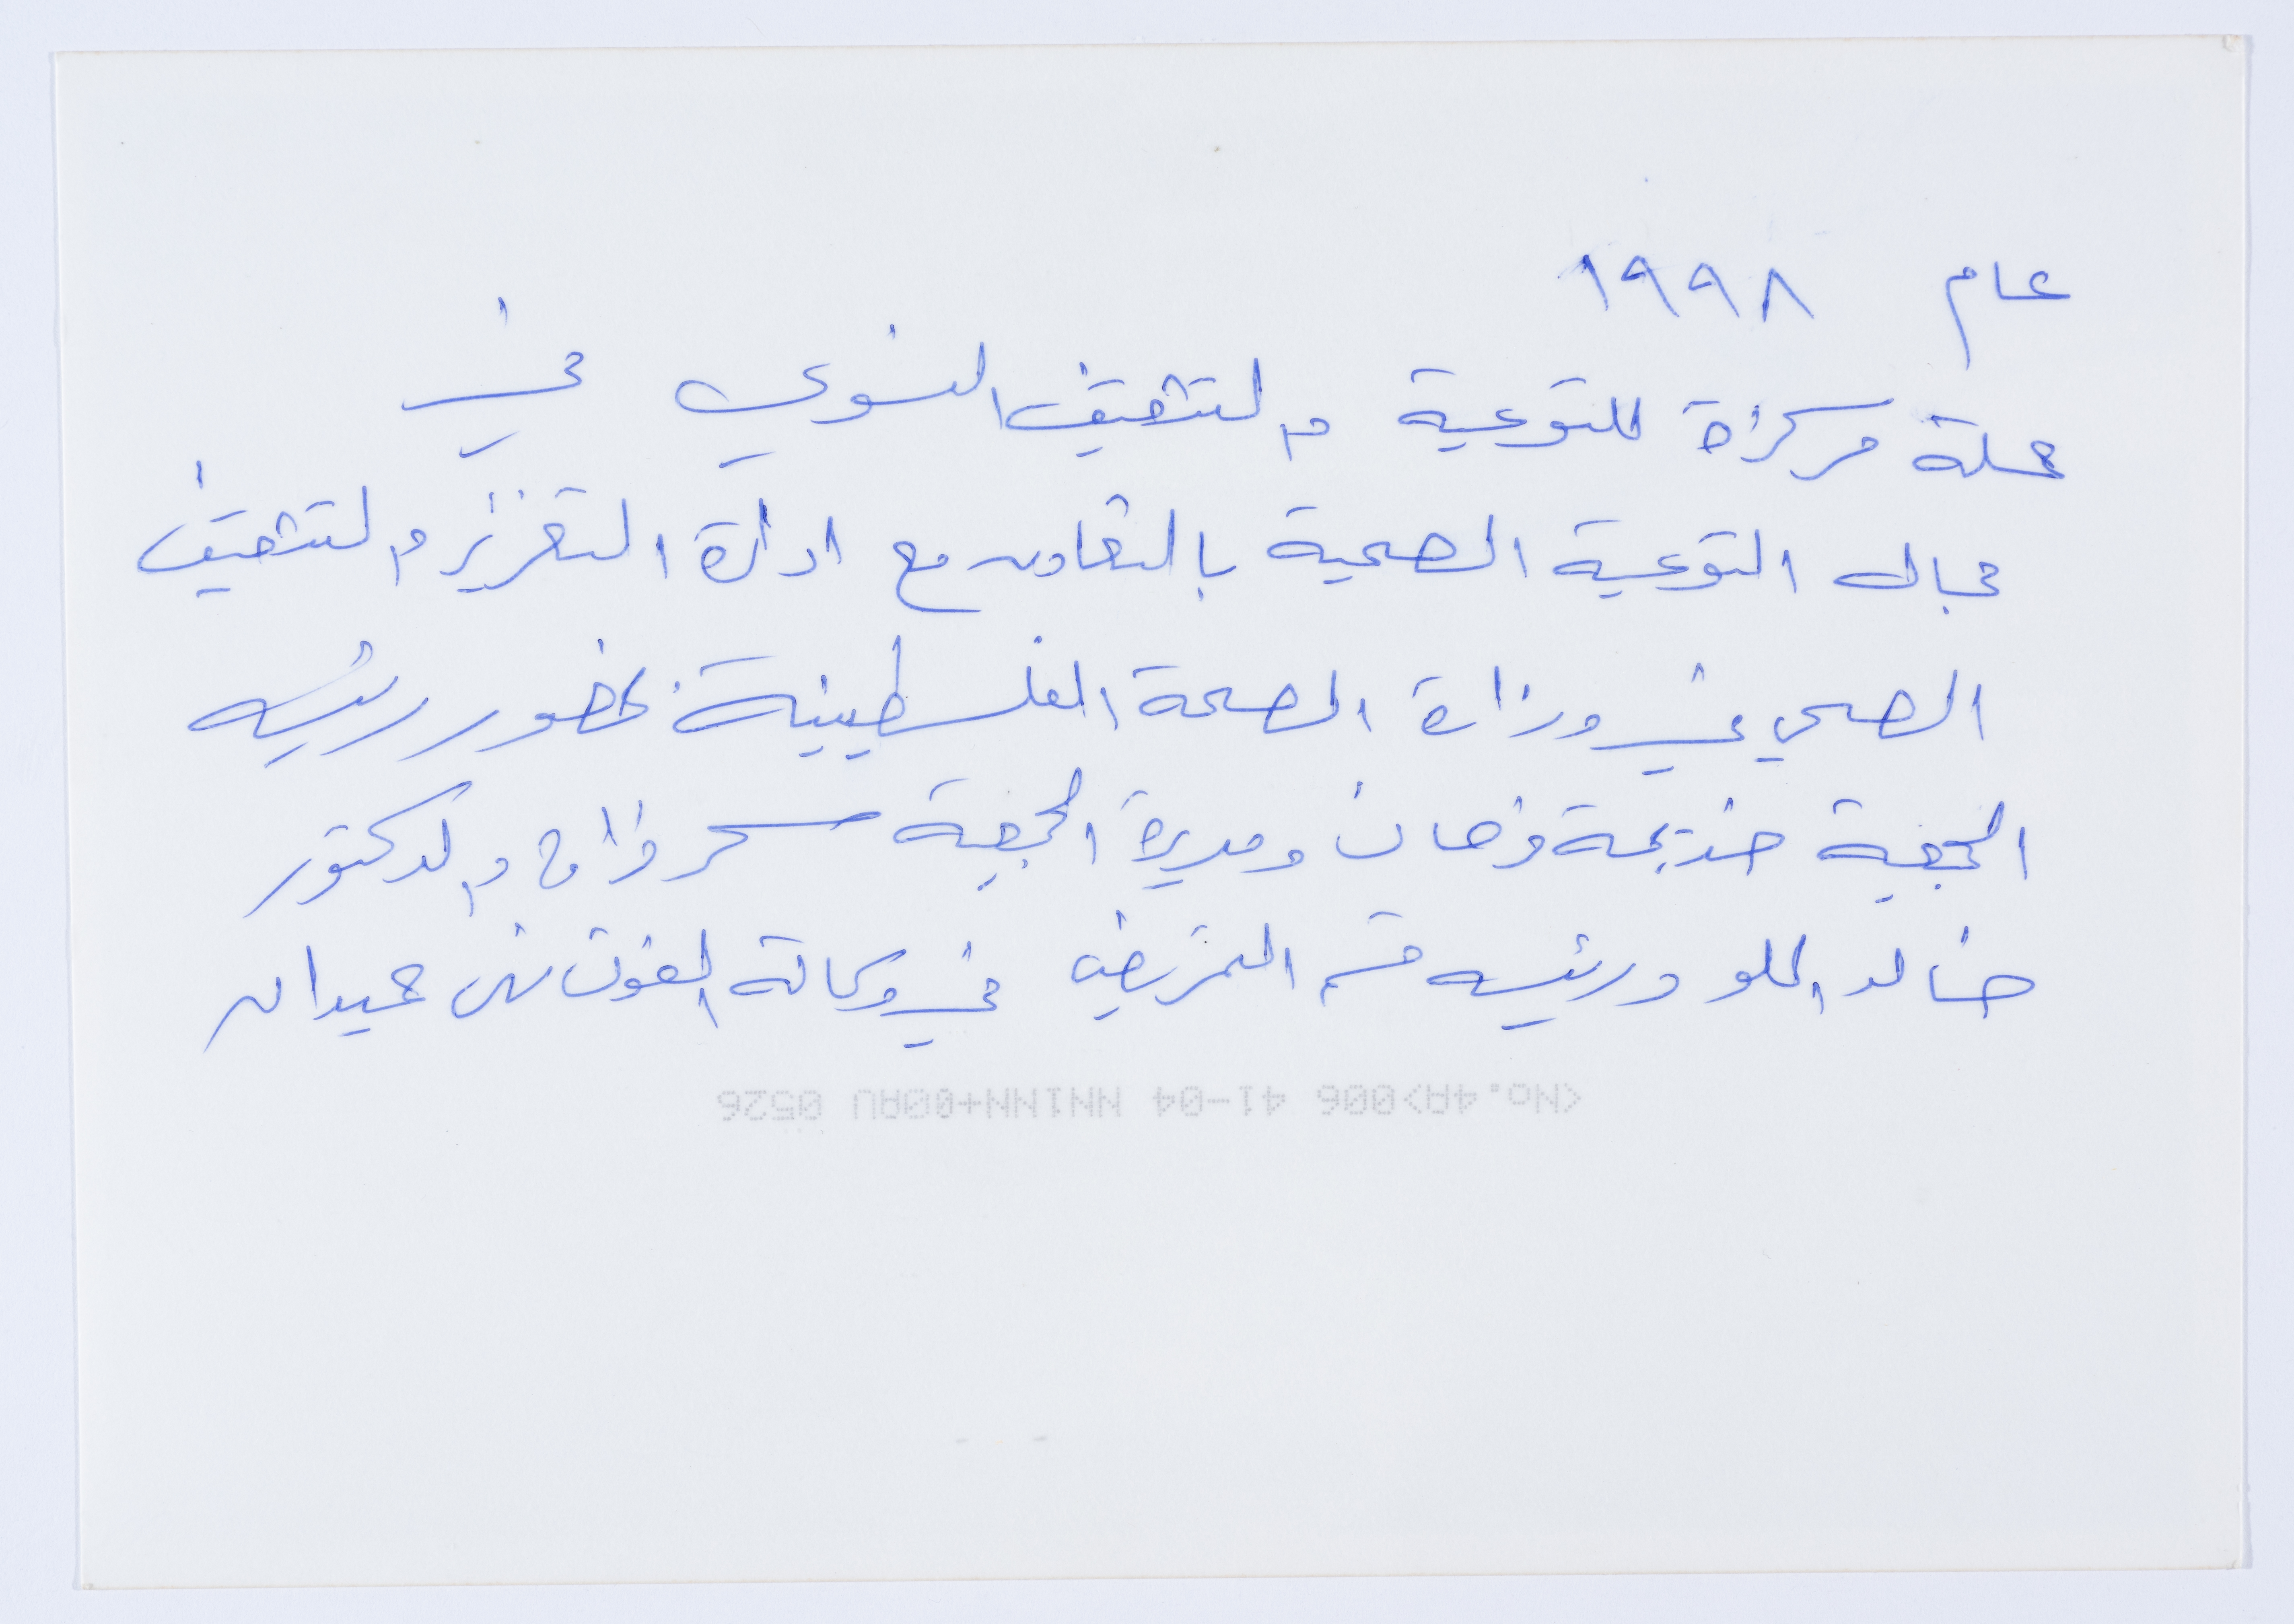 عام ١٩٩٨
حملة مركزة للتوعية والتثقيف النسوي في
مجال التوعية الصحية بالتعاون مع ادارة التعزيز والتثقيف
الصحي في وزارة الصحة الفلسطينية بحضور رئيسة
الجمعية خديجة زفات ومديرة الجمعية سحر والدكتور
خالد الحلو ورئيسة قسم التمريض في وكالة الغوث حميدان
<No.4A>006 41-04 NN1NN+00AU 0526